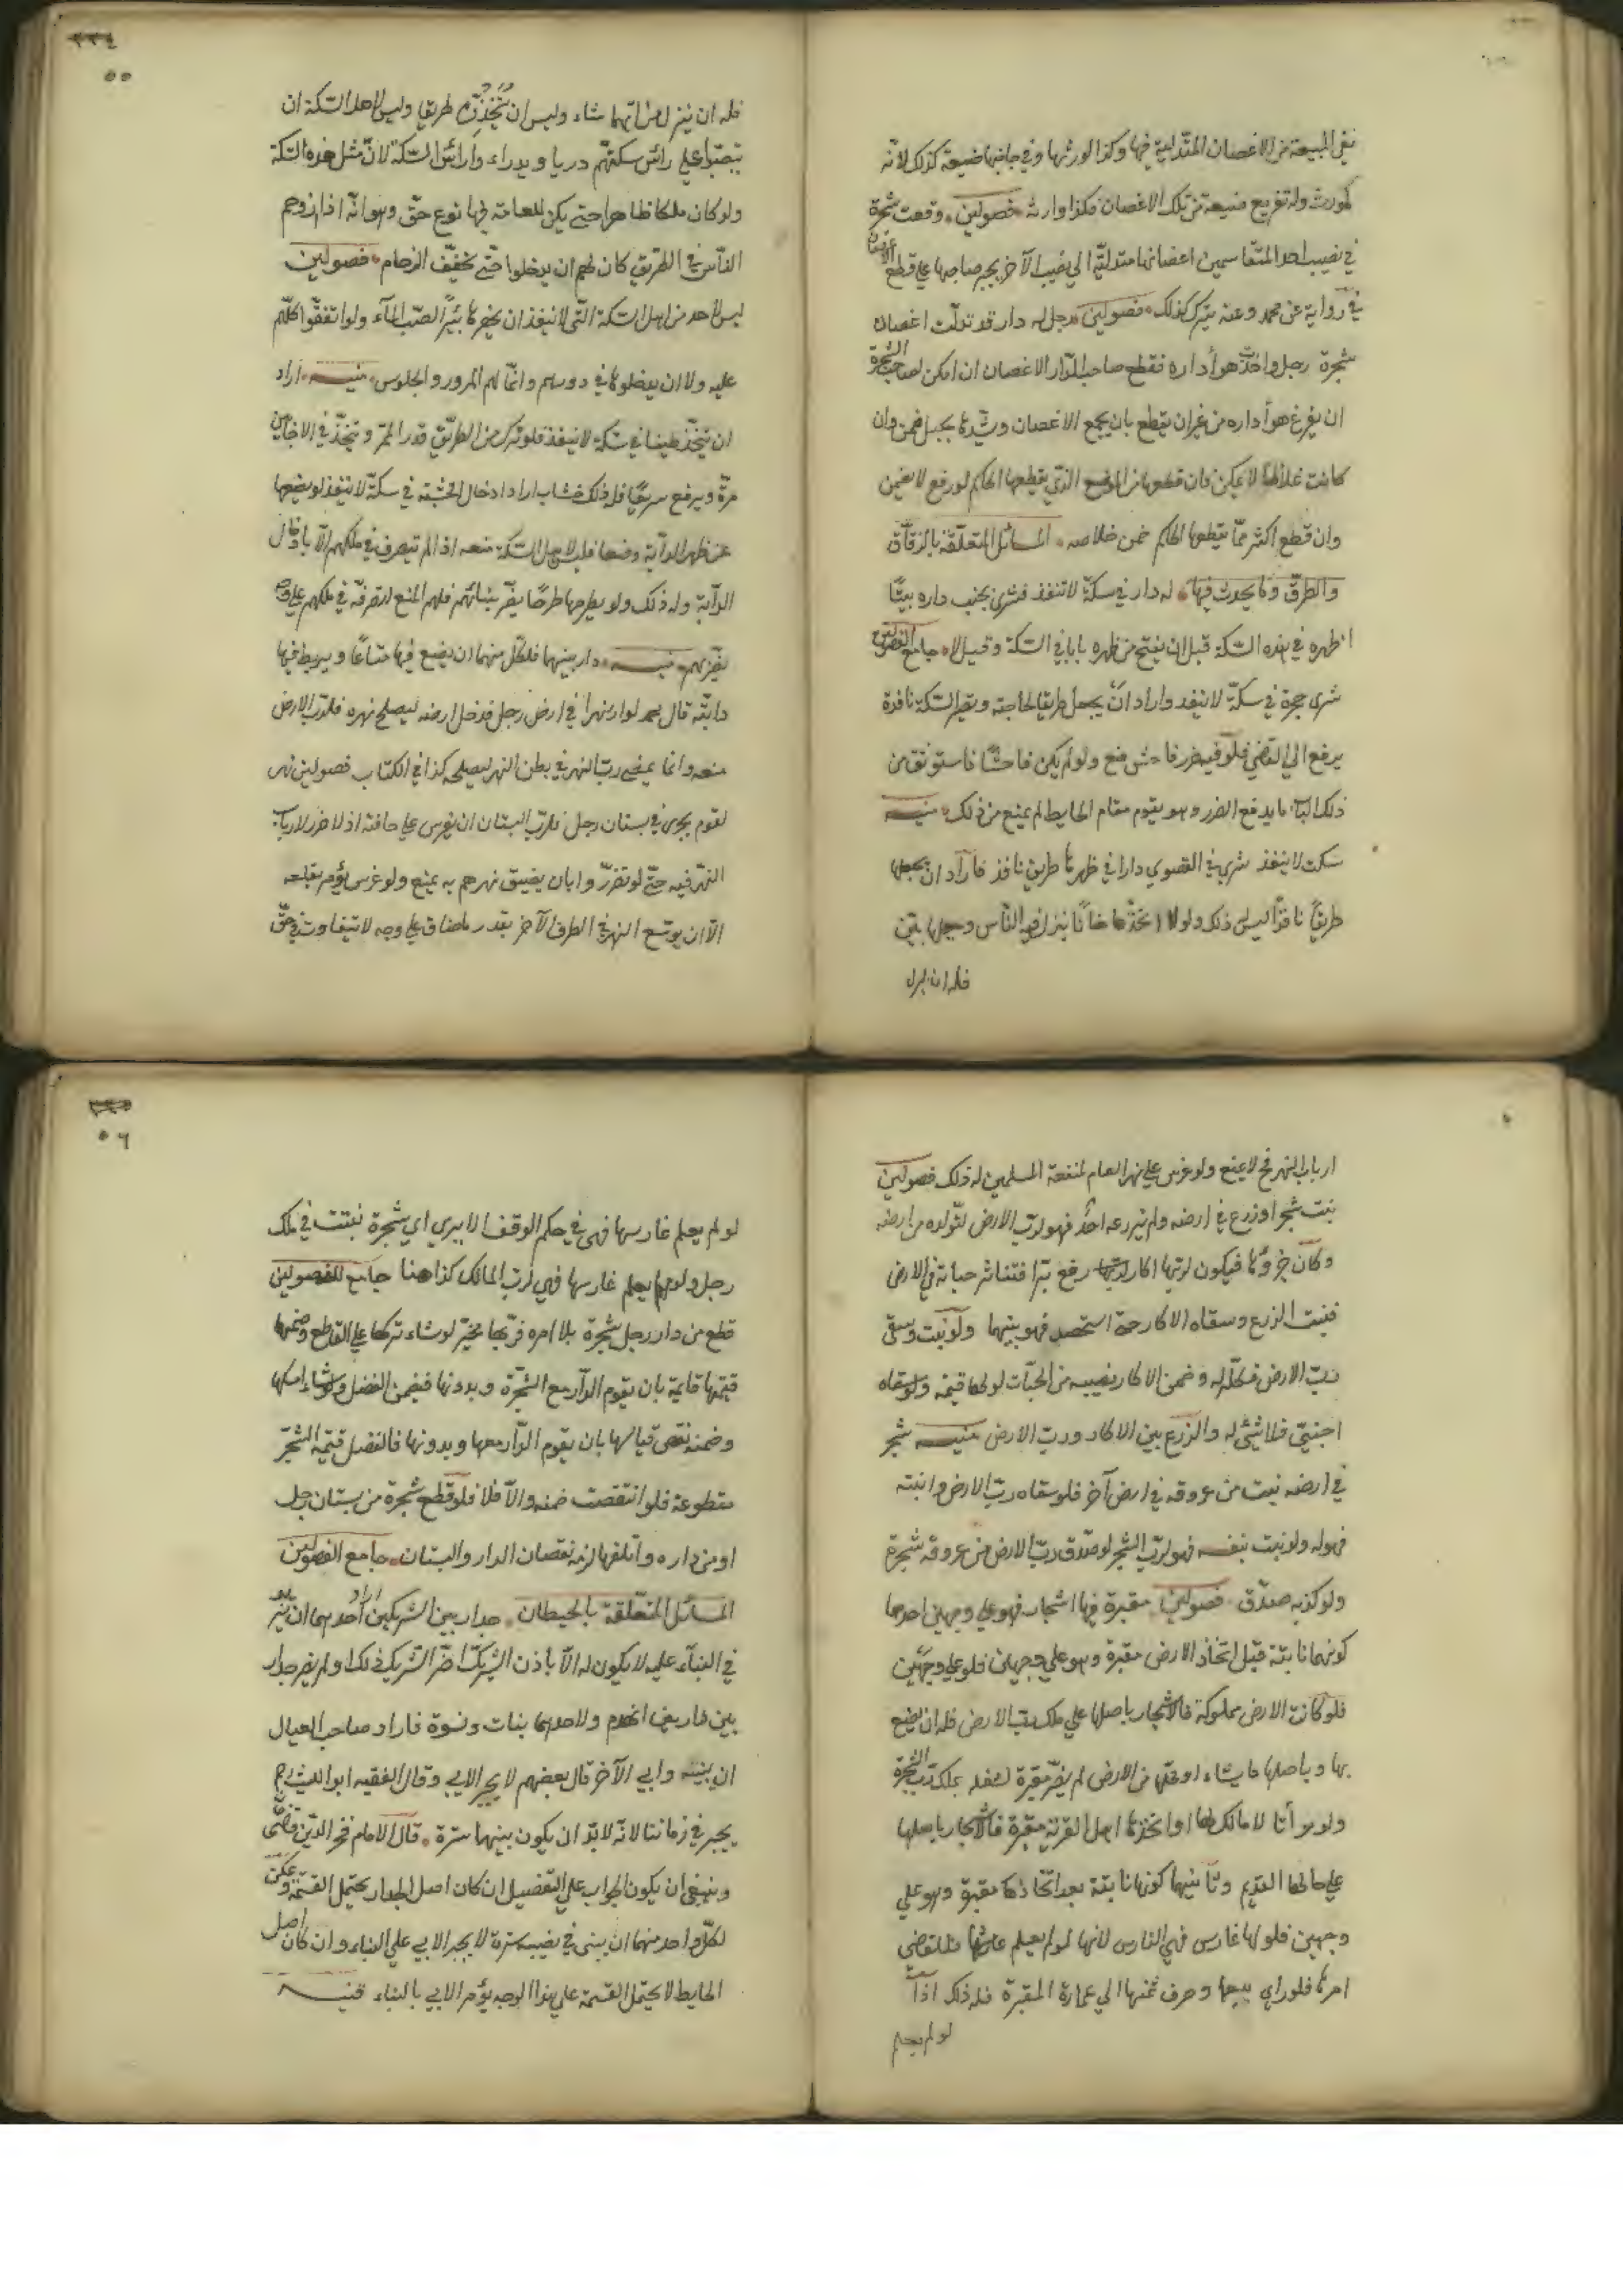 نفى المبيعة من الاغصان المتدلية فيها وكذا لو رثها وفي جانبها ضيعة كذلك لانه
لمورث وله تفريغ ضيعته من تلك الاغصان فكذا وارثه فصولين وقعت شجرة
في نصيب احد المتقاسمين اغصانها متدلية الى نصيب الآخر يجبر صاحبها على قطع الاغصان
في رواية عن محمد وعنه يترك كذلك فصولين رجل له دار قد تدلت اغصان
شجرة رجل واخذت هوأ داره فقطع صاحب الدار الاغصان ان امكن لصاحب الشجرة
ان يفرغ هوأ داره من غير ان يقطع بان يجمع الاغصان ويشدها بحبل ضمن وان
كانت غلاظا لا يمكن فان قطعها من الموضع الذي يقطعها الحاكم لو رفع لا يضمن
وان قطع اكثر مما يقطعها الحاكم ضمن خلاصه المسائل المتعلقة بالزقاق
والطرق وما يحدث فيها له دار في سكة لا تنفذ فشرى بجنب داره بيتا
ظهره في هذه السكة قيل ان يفتح من ظهره بابا في السكة وقيل لا جامع الفصولين
شرى حجرة في سكة لا ينفد واراد ان يجعل طريقا لحاجته ويصير السكة نافذة
يرفع الي القاضي فلو فيه ضرر فاحش منع ولو لم يكن فاحشا فاستوثق من
ذلك الباب ما يدفع الضرر وهو يقوم مقام الحايط لم يمنع من ذلك منيه
سكت لا ينفذ شرى في القصوي دارا في ظهرها طريق نافذ فاراد ان يجعلها
طريقا نافذا ليس ذلك ولو لا اتخذها خانا ينزل فيه الناس وجعل بابين
فله ان ينزل
٢٢٤
٥٥
فله ان ينزل من ايهما شاء وليس ان يتخذه طريقا وليس لاهل السكة ان
ينصبوا على رائس سكتهم دربا ويد واء رائس السكة لان مثل هذه السكة
ولو كان ملكا ظاهرا حتى يكن للعامة فيها نوع حق وهو انه اذا ازدحم
الناس في الطريق كان لهم ان يدخلوا حتى تخفف الزحام فصولين
ليس لاحد من اهل السكة التي لا ينفذ ان يحفرها بئرا لصب المآء ولو اتفقوا كلهم
عليه ولا ان يدخلوها في دورهم وانما لهم المرور والجلوس منيه اراد
ان يتخذ طينا في سكة لا ينفذ فلو ترك من الطريق قدر الممر ويتخذ في الاحايين
مرة ويرفع سريعا فله ذلك خشاب اراد ادخال الخشبة في سكة لا ينفذ لو يضعها
عن ظهر الدآبة وضعا فليس لاهل السكة منعه اذا لم يتصرف في ملكهم الا بادخال
الدآبة وله ذلك ولو يطرحها طرحا يضر ببنائهم فلهم المنع لتصرفه في ملكهم على وجه
يضرهم منيه دار بينهما فلكل منهما ان يضع فيها متاعا ويربط فيها
دابته قال محمد لو اراد نهرا في ارض رجل فدخل ارضه ليصلح نهره فلرب الارض
منعه وانما يمضي رب النهر في بطن النهر ليصلحه كذا في الكتاب فصولين نهر
لقوم يجري في بستان رجل فلرب البستان ان يغرس على حافته اذ لا ضرر لارباب
النهر فيه حتى لو تضرر وا بان يضيق نهرهم به يمنع ولو غرس يؤمر بقلعه
الا ان يوسع النهر في الطرف الآخر بقدر ما ضاق على وجه لا يتفاوت في حق
ارباب النهر فح لا يمنع ولو غرس على نهر العام لمنفعة المسلمين له ذلك فصولين
نبت شجر او زرع في ارضه ولم يزرعه احد فهو لرب الارض لتولده من ارضه
وكان جزؤها فيكون لربها اكار رفع بذرا فتناثر حباته في الارض
فنبت الزرع وسقاه الاكار حتى استحصد فهو بينهما ولو نبت وسقى
رب الارض فكله له وضمن الاكار نصيبه من الحبات لو لها قيمة ولو سقاه
اجنبي فلا شئ له والزرع بين الاكار ورب الارض منيه شجر
في ارضه نبت من عروقه في ارض آخر فلو سقاه رب الارض وانبته
فهو له ولو نبت بنفسه فهو لرب الشجر لو صدق رب الارض من عروقه شجرة
ولو كذبه صدق فصولين مقبرة فيها اشجار فهو على وجهين احدهما
كونها نابتة قبل اتخاذ الارض مقبرة وهو على وجهين فلو على وجهين
فلو كانت الارض مملوكة فالاشجار باصلها علي ملك رب الارض فله ان يضع
بها وباصلها ما يشاء اذ محلها من الارض لم يصر مقبرة لشغله بملك رب الشجرة
ولو مواتا لا مالك لها او اتخذها اهل القرية مقبرة فالاشجار باصلها
على حالها القديم وثانيها كونها نابتة بعد اتخاذها مقبرة وهو على
وجهين فلو لها غارس فهي للغارس لانها لو لم يعلم غارسها فللقاضي
امرها فلو راى بيعها وصرف ثمنها الى عمارة المقبرة فله ذلك اذا
لو لم يعلم
٥٦
لو لم يعلم غارسها فهي في حكم الوقف الا يرى اي شجرة نبتت في ملك
رجل ولو لم يعلم غارسها فهي لرب المالك كذا هنا جامع الفصولين
قطع من دار رجل شجرة بلا امره فربها مخير لو شاء تركها على القاطع وضمنه
قيمتها قايمة بان يقوم الدآر مع الشجرة وبدونها فيضمن الفضل ولو شاء امسكها
وضمنه نقص قيامها بان يقوم الدآر معها وبدونها فالفضل قيمة الشجر
مقطوعة فلو انتقصت ضمنه والا فلا فلو قطع شجرة من بستان رجل
او من داره واتلفها لزمه نقصان الدار والبستان جامع الفصولين
المسائل المتعلقة بالحيطان جدار بين الشريكين اراد احدهما ان يزيد
في البنآء عليه لا يكون له الا باذن الشريك اضر الشريك ذلك او لم يضر جدار
بين دارين انهدم ولاحدهما بنات ونسوة فاراد صاحب العيال
ان يبنيه وابي الآخر قال بعضهم لا يجبر الابي وقال الفقيه ابو الليث رح
يجبر في زماننا لانه لا بد ان يكون بينهما سترة قال الامام فخر الدين قاضى
وينبغي ان يكون الجواب على التفصيل ان كان اصل الجدار يحتمل القسمة ويمكن
لكل واحد منهما ان يبنى في نصيبه سترة لا يجبر الابي على البناء وان كان اصل
الحايط لا يحتمل القسمة على هذا الوجه يؤمر الابي بالبناء قنيه